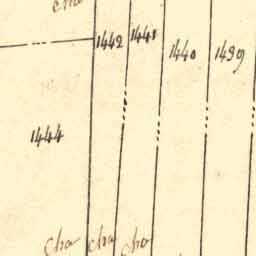 cha
1442 1441 1440 1439
1444
cha cha cha